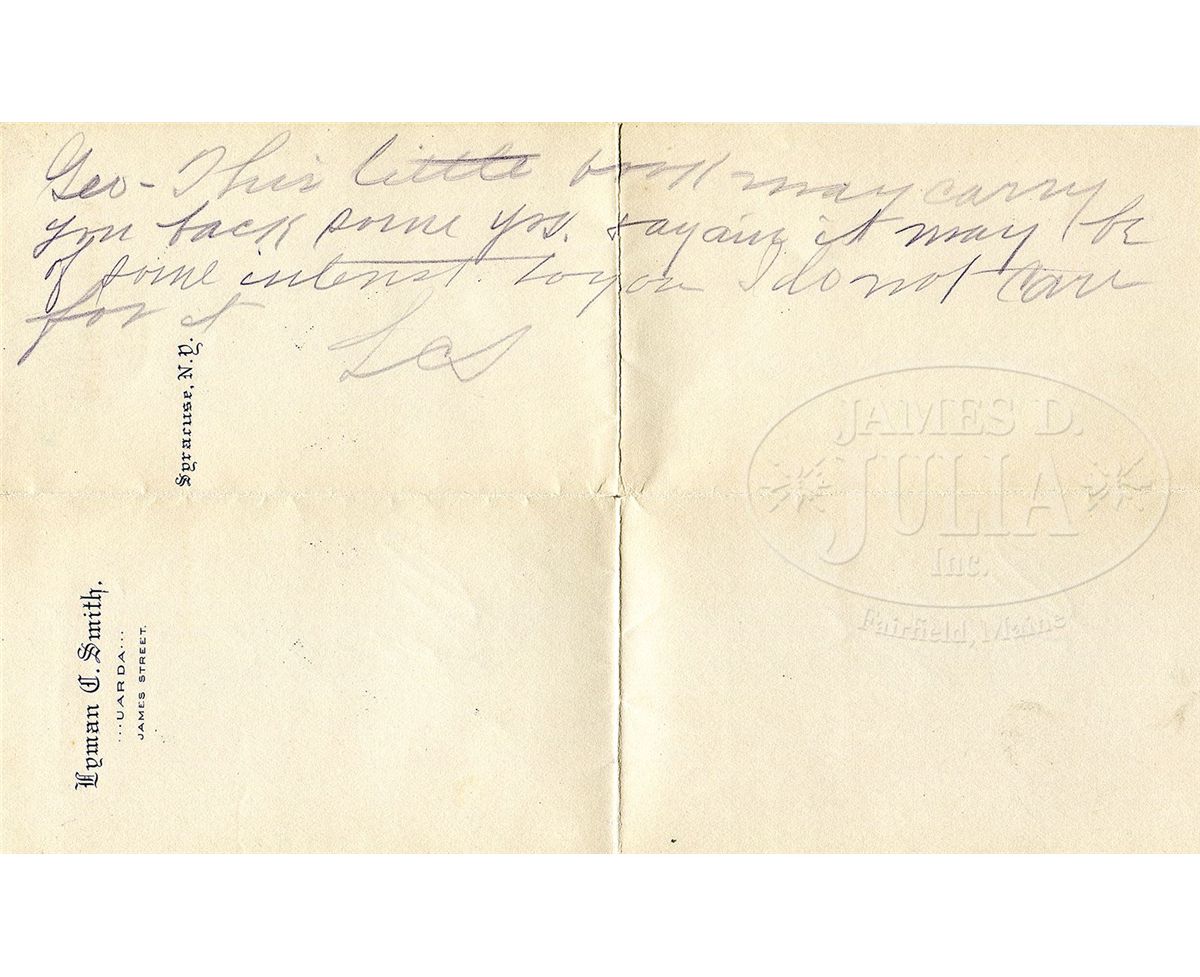 Geo - This little book may carry
you back some yrs. & again it may be
of some interest. to you I do not care
for it
LCS
Syracuse, N.Y.
Lyman C. Smith.
...UARDA...
JAMES STREET.
JAMES D.
JULIA
Inc.
Fairfield, Maine